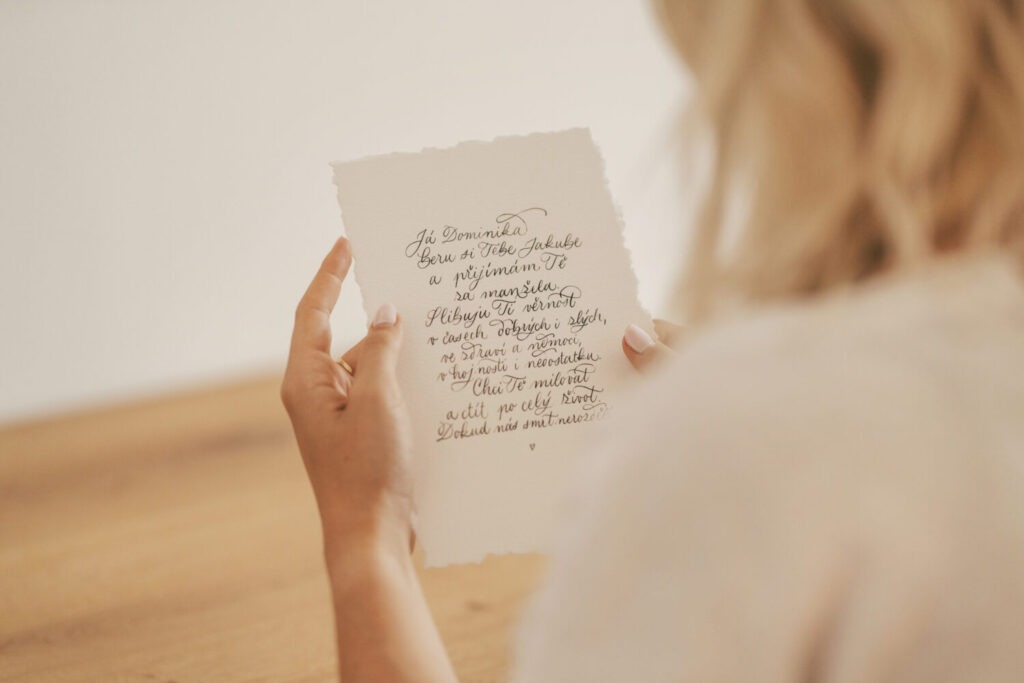 Já Dominika
beru si Tebe Jakube
a přijímám Tě
za manžela.
Slibuji Ti věrnost
v časech dobrých i zlých,
ve zdraví a nemoci,
v hojnosti i nedostatku.
Chci Tě milovat
a ctít po celý život.
Dokud nás smrt